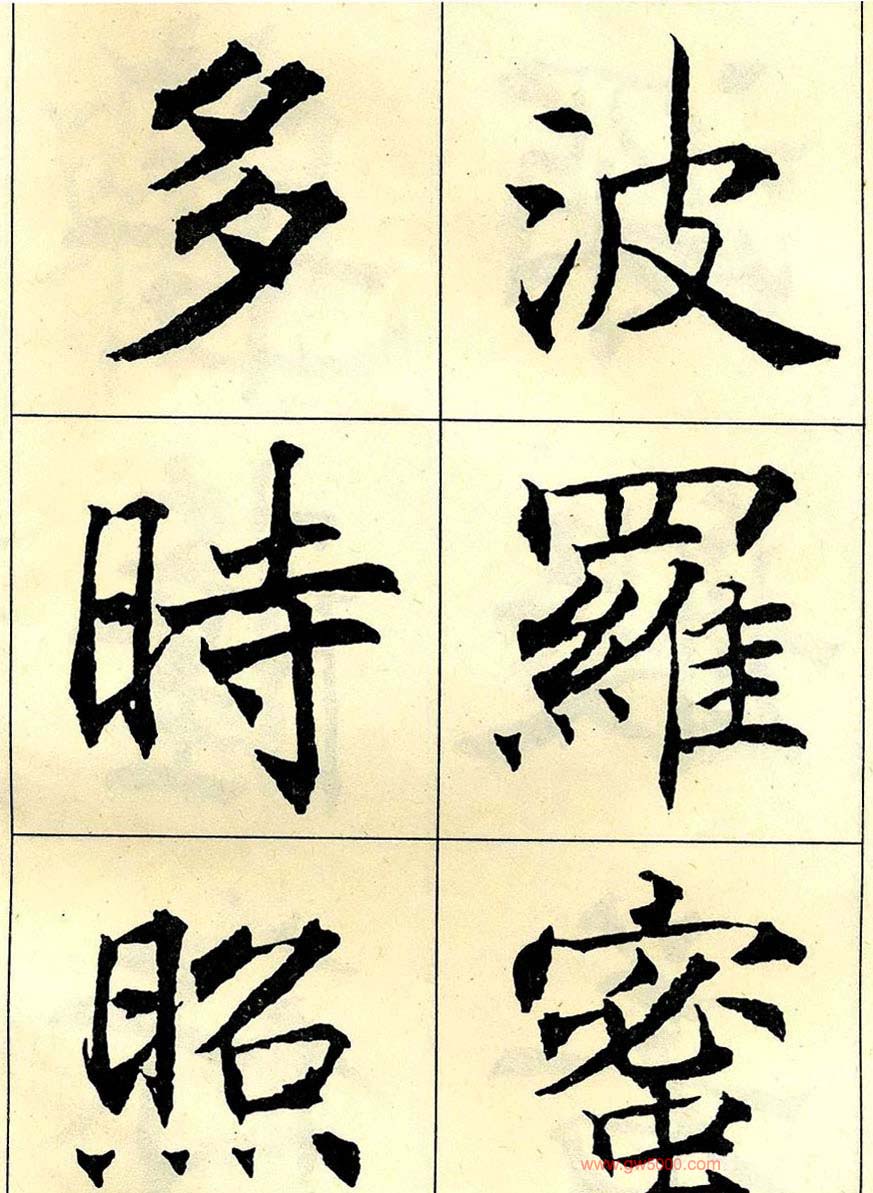 波羅蜜
多時照
www.gw5000.com